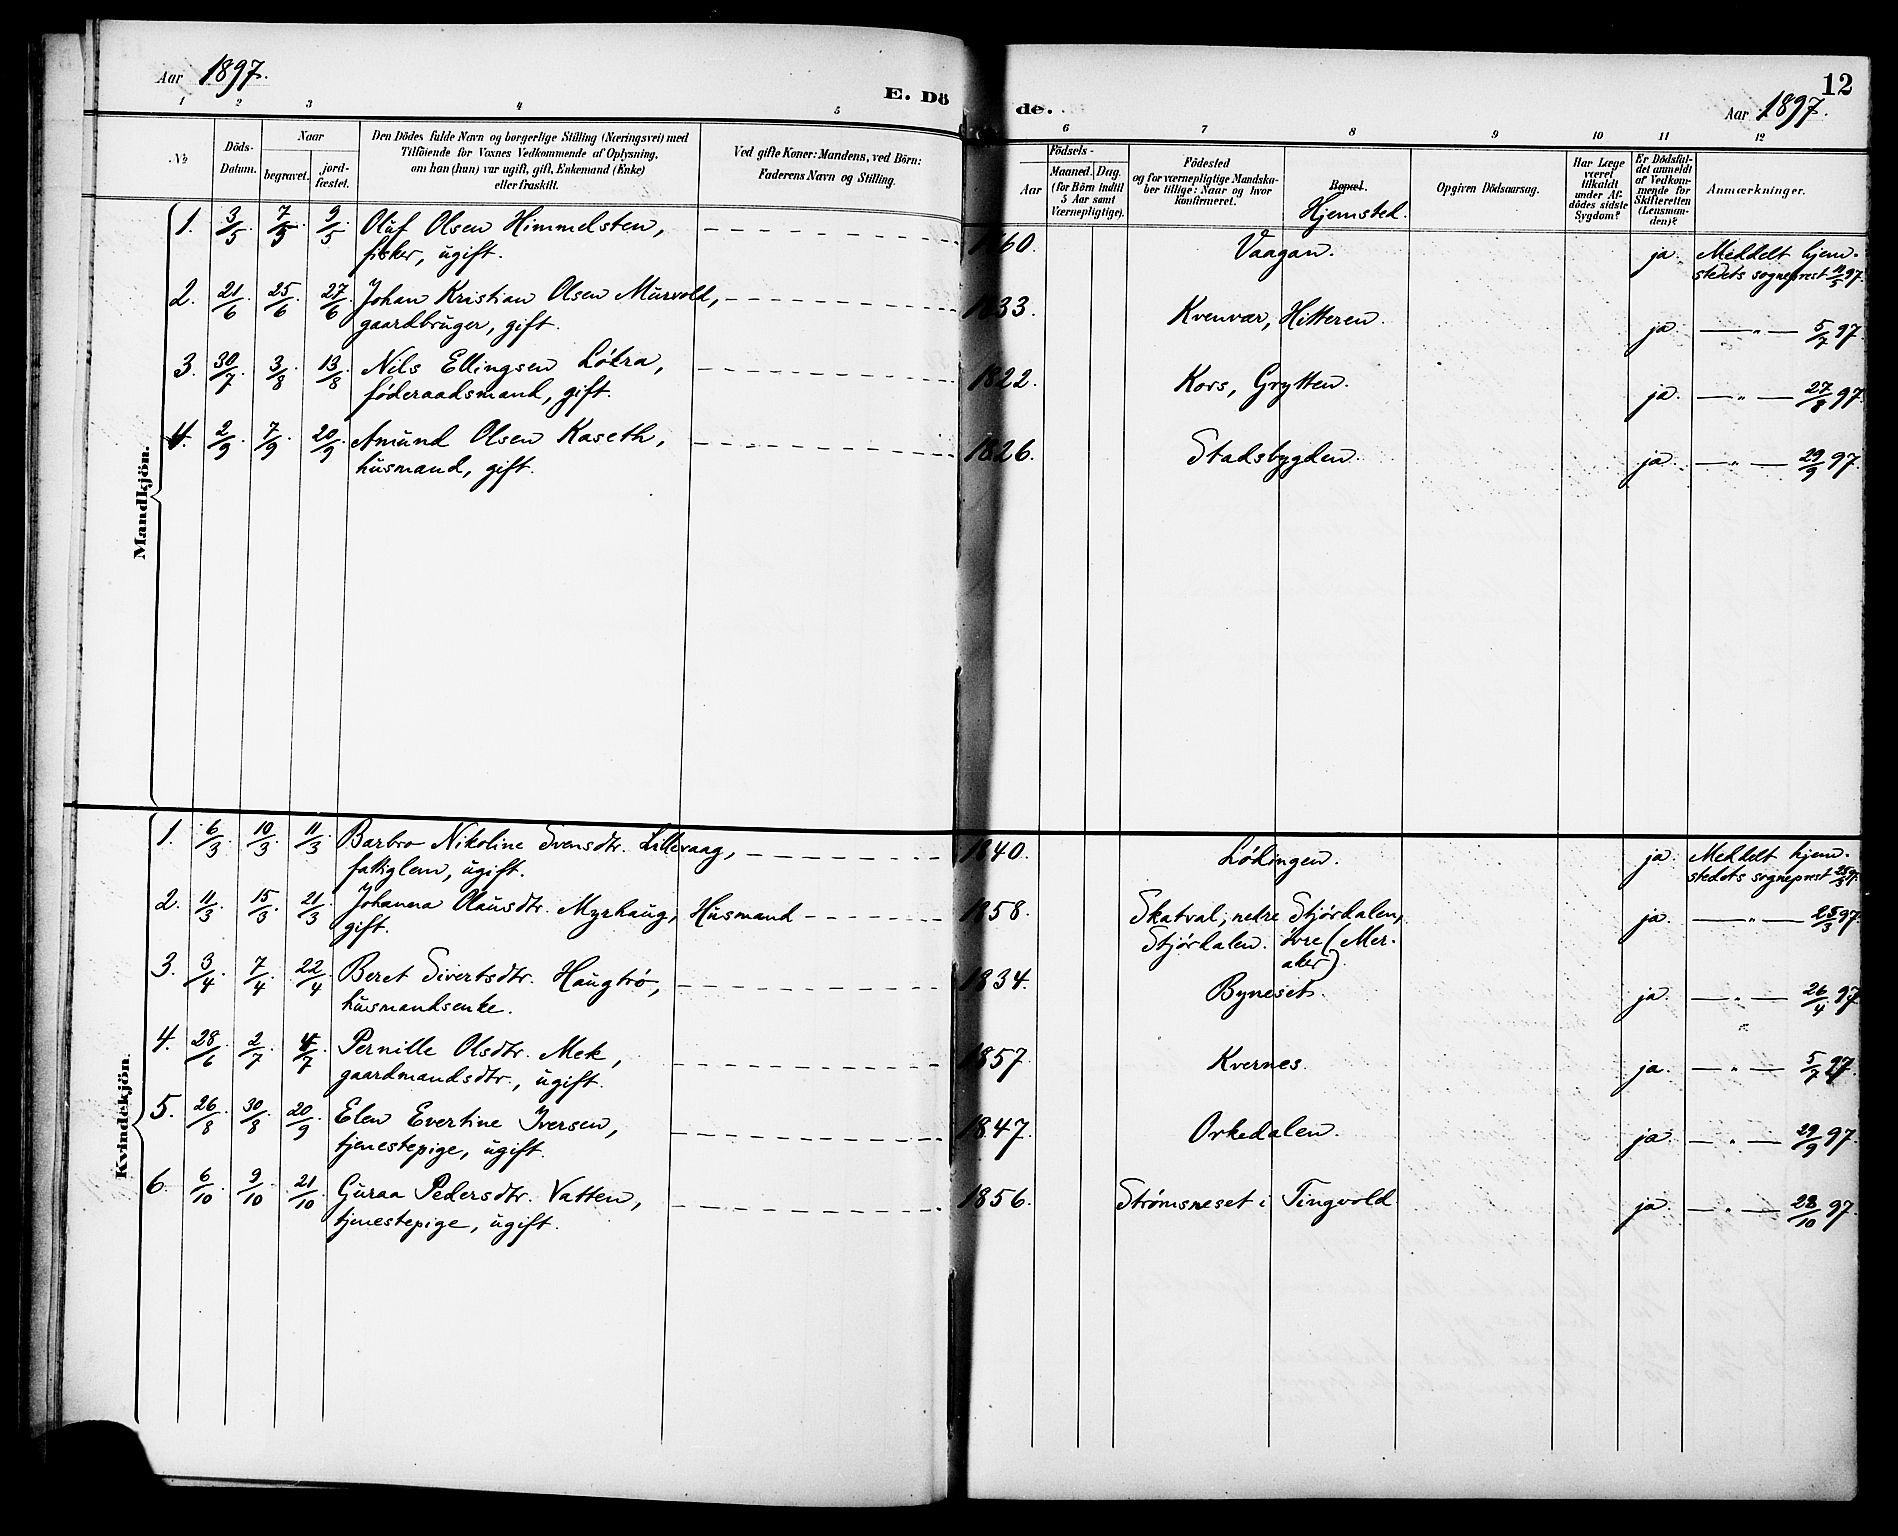 Aar 1897.
E. Dö
de.
12
Aar 1897.
1 2 3 4 5 6 7 8 9 10 11 12
No
Döds-
Datum.
Naar
begravet.
jord-
fæstet.
Den Dödes fulde Navn og borgerlige Stilling (Næringsvei) med
Tilföiende for Voxnes Vedkommende af Oplysning,
om han (hun) var ugift, gift, Enkemand (Enke)
eller fraskilt.
Ved gifte Koner: Mandens, ved Börn:
Faderens Navn og Stilling.
Födsels-
Aar
Maaned. Dag.
(for Börn indtil
5 Aar samt
Værnepligtige).
Födested
og for værnepligtige Mandska-
ber tillige: Naar og hvor
konfirmeret.
Bopæl.
Hjemsted.
Opgiven Dödsaarsag.
Har Læge
været
tilkaldt
under Af-
dödes sidste
Sygdom?
Er Dödsfal-
det anmeldt
af Vedkom-
mende for
Skifteretten
(Lensman-
den)?
Anmærkninger.
Mandkjön.
1. 3/5. 7/5 9/5. Oluf Olsen Himmelsten, 1860. Vaagan. ja. Meddelt hjem-
fisker, ugift. stedets sogneprest 11/5 97.
2. 21/6 25/6 27/6 Johan Kristian Olsen Murvold, 1833. Kvenvær, Hitteren. ja. — " — 5/7 97.
gaardbruger, gift.
3. 30/7 3/8 13/8 Nils Ellingsen Lökra, 1822. Kors, Grytten. ja. — " — 27/8 97.
föderaadsmand, gift.
4. 2/9 7/9 20/9 Amund Olsen Kaseth, 1826. Stadsbygden. ja. — " — 29/9 97.
husmand, gift.
Kvindekjön.
1. 6/3 10/3 11/3 Barbro Nikoline Svensdtr. Lillevaag, 1840. Lödingen. ja. Meddelt hjem-
fattiglem, ugift. stedets sogneprest 25/3 97.
2. 11/3 15/3 21/3 Johanna Olausdtr. Myrhaug, Husmand 1858. Skatval, nedre Stjördalen, ja. — " — 25/3 97.
gift. Stjördalen. övre (Mer-
aker)
3. 3/4 7/4 22/4 Beret Sivertsdtr. Haugtrö, 1834. Byneset. ja. — " — 26/4 97.
husmandsenke.
4. 28/6 2/7 4/7 Pernille Olsdtr. Mek, 1857. Kvernes. ja. — " — 5/7 97.
gaardmandsdtr., ugift.
5. 26/8 30/8 20/9 Elen Evertine Iversen, 1847. Orkedalen. ja. — " — 29/9 97.
tjenestepige, ugift.
6. 6/10 9/10 21/10 Guraa Pedersdtr. Vatten, 1856. Strømsneset i Tingvold ja. — " — 28/10 97.
tjenestepige, ugift.